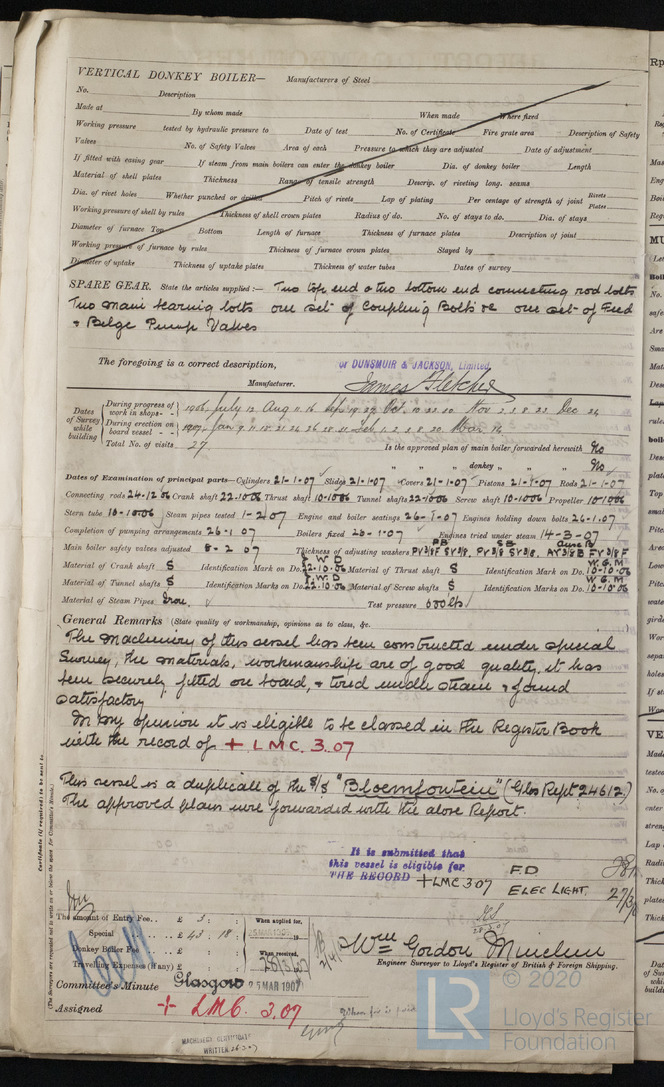 VERTICAL DONKEY BOILER— Manufacturers of Steel
No. Description
Made at By whom made When made Where fixed
Working pressure tested by hydraulic pressure to Date of test No. of Certificate Fire grate area Description of Safety
Valves No. of Safety Valves Area of each Pressure to which they are adjusted Date of adjustment
If fitted with easing gear If steam from main boilers can enter the donkey boiler Dia. of donkey boiler Length
Material of shell plates Thickness Range of tensile strength Descrip. of riveting long. seams
Dia. of rivet holes Whether punched or drilled Pitch of rivets Lap of plating Per centage of strength of joint Rivets Plates
Working pressure of shell by rules Thickness of shell crown plates Radius of do. No. of stays to do. Dia. of stays
Diameter of furnace Top Bottom Length of furnace Thickness of furnace plates Description of joint
Working pressure of furnace by rules Thickness of furnace crown plates Stayed by
Diameter of uptake Thickness of uptake plates Thickness of water tubes Dates of survey
SPARE GEAR. State the articles supplied:— Two top end & two bottom end connecting rod bolts
Two main bearing bolts one set of Coupling Bolts &c one set of Feed
& Bilge Pump Valves
The foregoing is a correct description,
for DUNSMUIR & JACKSON, Limited.
Manufacturer. James Fletcher
Dates of Survey while building
During progress of work in shops - - 1906. July 13 Aug 11. 16 Sep 19. 29 Oct. 10. 22. 30 Nov 2. 3. 8. 23 Dec 24
During erection on board vessel - - 1907. Jan 9. 11. 15. 21. 24. 26 Feb 1. 2. 8. 20 Mar 14
Total No. of visits 27
Is the approved plan of main boiler forwarded herewith No
" " " donkey " " No
Dates of Examination of principal parts—Cylinders 21-1-07 Slides 21-1-07 Covers 21-1-07 Pistons 21-1-07 Rods 21-1-07
Connecting rods 24-12-06 Crank shaft 22-10-06 Thrust shaft 10-10-06 Tunnel shafts 22-10-06 Screw shaft 10-10-06 Propeller 10-10-06
Stern tube 10-10-06 Steam pipes tested 1-2-07 Engine and boiler seatings 26-1-07 Engines holding down bolts 26-1-07
Completion of pumping arrangements 26-1-07 Boilers fixed 26-1-07 Engines tried under steam 14-3-07
Main boiler safety valves adjusted 8-2-07 Thickness of adjusting washers
Material of Crank shaft S Identification Mark on Do. W.D 22.10.06 Material of Thrust shaft S Identification Mark on Do. W.G.M 10-10-06
Material of Tunnel shafts S Identification Marks on Do. W.D 22.10.06 Material of Screw shafts S Identification Marks on Do. W.G.M 10-10-06
Material of Steam Pipes Iron. Test pressure 600 lbs
General Remarks (State quality of workmanship, opinions as to class, &c.
The Machinery of this vessel has been constructed under special
Survey, the materials, workmanship are of good quality, it has
been securely fitted on board, & tried under steam & found
satisfactory
In my opinion it is eligible to be classed in the Register Book
with the record of + LMC. 3.07
This vessel is a duplicate of the S/S "Bloemfontein" (Glas Rept 24612)
The approved plans were forwarded with the above Report.
It is submitted that
this vessel is eligible for
THE RECORD + LMC 3 07 F.D
ELEC LIGHT.
Certificate (if required) to be sent to
(The Surveyors are requested not to write on or below the space for Committee's Minute.)
The amount of Entry Fee.. £ 3 : When applied for,
Special .. £ 43 : 18 :
Donkey Boiler Fee £ : : When received,
Travelling Expenses (if any) £ : :
Wm Gordon Murchie
Engineer Surveyor to Lloyd's Register of British & Foreign Shipping.
Committee's Minute Glasgow 25 MAR 1907
Assigned + LMC. 3.07
MACHINERY CERTIFICATE
WRITTEN 26-3-07
© 2020
LR Lloyd's Register
Foundation